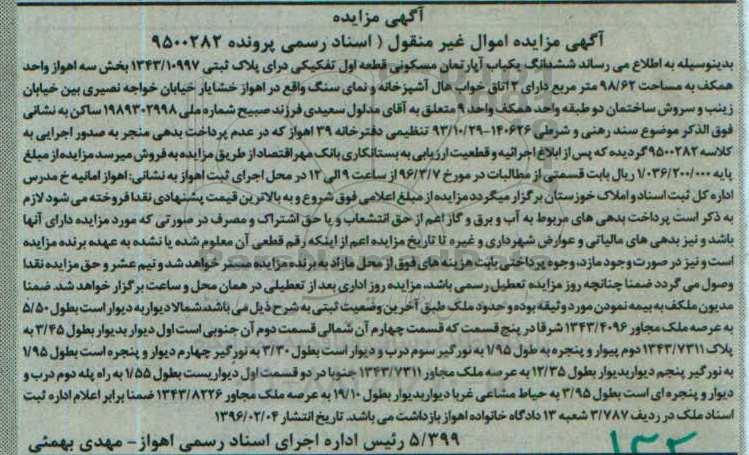 آگهی مزایده
آگهی مزایده اموال غیر منقول ( اسناد رسمی پرونده ۹۵۰۰۲۸۲
بدینوسیله به اطلاع می رساند ششدانگ یکباب آپارتمان مسکونی قطعه اول تفکیکی درای پلاک ثبتی ۱۳۴۳/۱۰۹۹۷ بخش سه اهواز واحد
همکف به مساحت ۹۸/۶۲ متر مربع دارای ۲ اتاق خواب هال آشپزخانه و نمای سنگ واقع در اهواز خشایار خیابان خواجه نصیری بین خیابان
زینب و سروش ساختمان دو طبقه واحد همکف واحد ۹ متعلق به آقای مدلول سعیدی فرزند صبیح شماره ملی ۱۹۸۹۳۰۲۹۹۸ ساکن به نشانی
فوق الذکر موضوع سند رهنی و شرطی ۱۴۰۶۲۶-۹۳/۱۰/۲۹ تنظیمی دفترخانه ۳۹ اهواز که در عدم پرداخت بدهی منجر به صدور اجرایی به
کلاسه ۹۵۰۰۲۸۲ گردیده که پس از ابلاغ اجرائیه و قطعیت ارزیابی به بستانکاری بانک مهر اقتصاد از طریق مزایده به فروش میرسد مزایده از مبلغ
پایه ۱/۰۳۶/۲۰۰/۰۰۰ ریال بابت قسمتی از مطالبات در مورخ ۹۶/۳/۷ از ساعت ۹ الی ۱۲ در محل اجرای ثبت اهواز به نشانی: اهواز امانیه خ مدرس
اداره کل ثبت اسناد و املاک خوزستان برگزار میگردد مزایده از مبلغ اعلامی فوق شروع و به بالاترین قیمت پیشنهادی نقدا فروخته می شود لازم
به ذکر است پرداخت بدهی های مربوط به آب و برق و گاز اعم از حق انتشعاب و یا حق اشتراک و مصرف در صورتی که مورد مزایده دارای آنها
باشد و نیز بدهی های مالیاتی و عوارض شهرداری و غیره تا تاریخ مزایده اعم از اینکه رقم قطعی آن معلوم شده یا نشده به عهده برنده مزایده
است و نیز در صورت وجود مازد، وجوه پرداختی بابت هزینه های فوق از محل مازاد به برنده مزایده مستر خواهد شد و نیم عشر و حق مزایده نقدا
وصول می گردد ضمنا چنانچه روز مزایده تعطیل رسمی باشد، مزایده روز اداری بعد از تعطیلی در همان محل و ساعت برگزار خواهد شد. ضمنا
مدیون ملکف به بیمه نمودن مورد وثیقه بوده و حدود ملک طبق آخرین وضعیت ثبتی به شرح ذیل می باشد، شمالا دیوار به دیوار است بطول ۵/۵۰
به عرصه ملک مجاور ۱۳۴۳/۴۰۹۶ شرقا در پنج قسمت که قسمت چهارم آن شمالی قسمت دوم آن جنوبی است اول دیوار بدیوار بطول ۳/۴۵ به
پلاک ۱۳۴۳/۷۳۱۱ دوم پیوار و پنجره به طول ۱/۹۵ به نورگیر سوم درب و دیوار است بطول ۳/۳۰ به نورگیر چهارم دیوار و پنجره است بطول ۱/۹۵
به نورگیر پنجم دیوار بدیوار بطول ۱۲/۳۵ به عرصه ملک مجاور ۱۳۴۳/۷۳۱۱ جنوبا در دو قسمت اول دیواریست بطول ۱/۵۵ به راه پله دوم درب و
دیوار و پنجره ای است بطول ۳/۹۵ به حیاط مشاعی غربا دیوار بدیوار بطول ۱۹/۱۰ به عرصه ملک مجاور ۱۳۴۳/۸۲۲۶ ضمنا برابر اعلام اداره ثبت
اسناد ملک در ردیف ۳/۷۸۷ شعبه ۱۳ دادگاه خانواده اهواز بازداشت می باشد. تاریخ انتشار ۱۳۹۶/۰۲/۰۴
۵/۳۹۹ رئیس اداره اجرای اسناد رسمی اهواز - مهدی بهمئی
۱۳۲